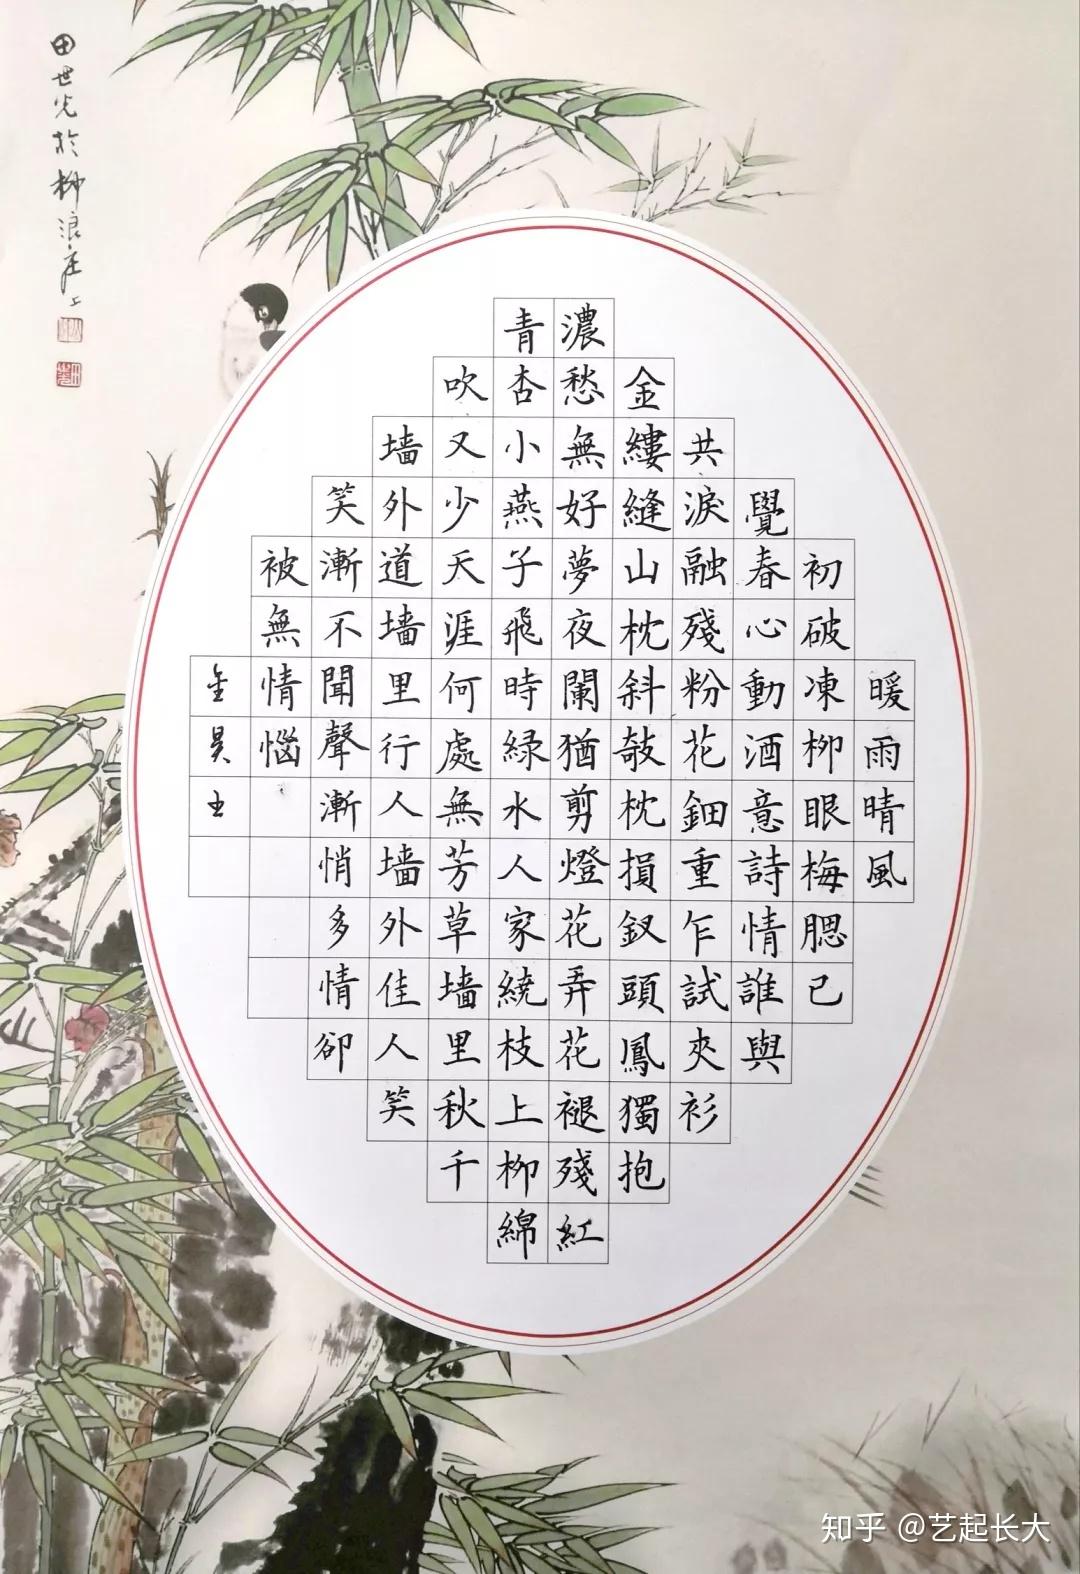 田世光於柳浪庄上
暖雨晴風
初破凍柳眼梅腮已
覺春心動酒意詩情誰與
共淚融殘粉花鈿重乍試夾衫
金縷縫山枕斜敧枕損釵頭鳳獨抱
濃愁無好夢夜闌猶剪燈花弄花褪殘紅
青杏小燕子飛時綠水人家繞枝上柳綿
吹又少天涯何處無芳草墙里秋千
墙外道墙里行人墙外佳人笑
笑漸不聞聲漸悄多情卻
被無情惱
金昊
知乎 @艺起长大